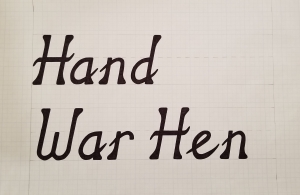 Hand
War Hen